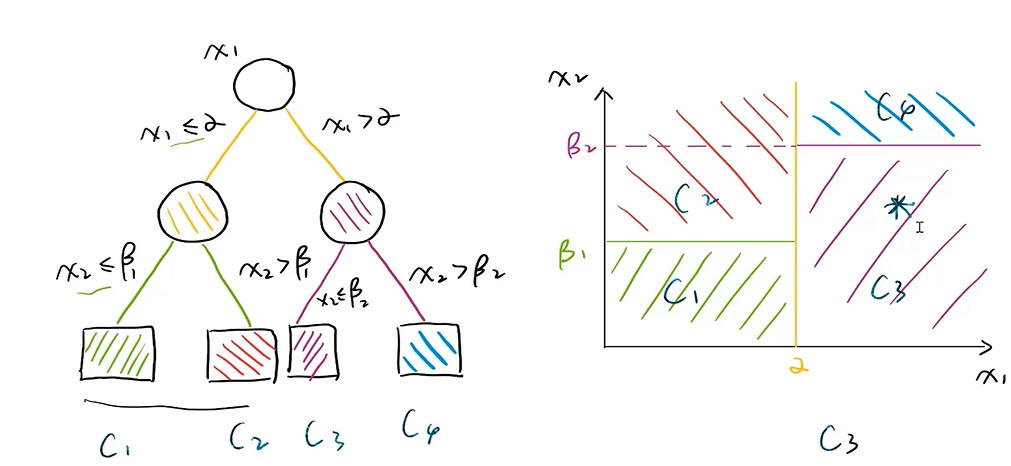 x₁
x₁ ≤ 2
x₁ > 2
x₂ ≤ β₁
x₂ > β₁
x₂ ≤ β₂
x₂ > β₂
C₁
C₂
C₃
C₄
x₂
β₂
β₁
C₂
C₄
C₁
*
C₃
2
x₁
C₃